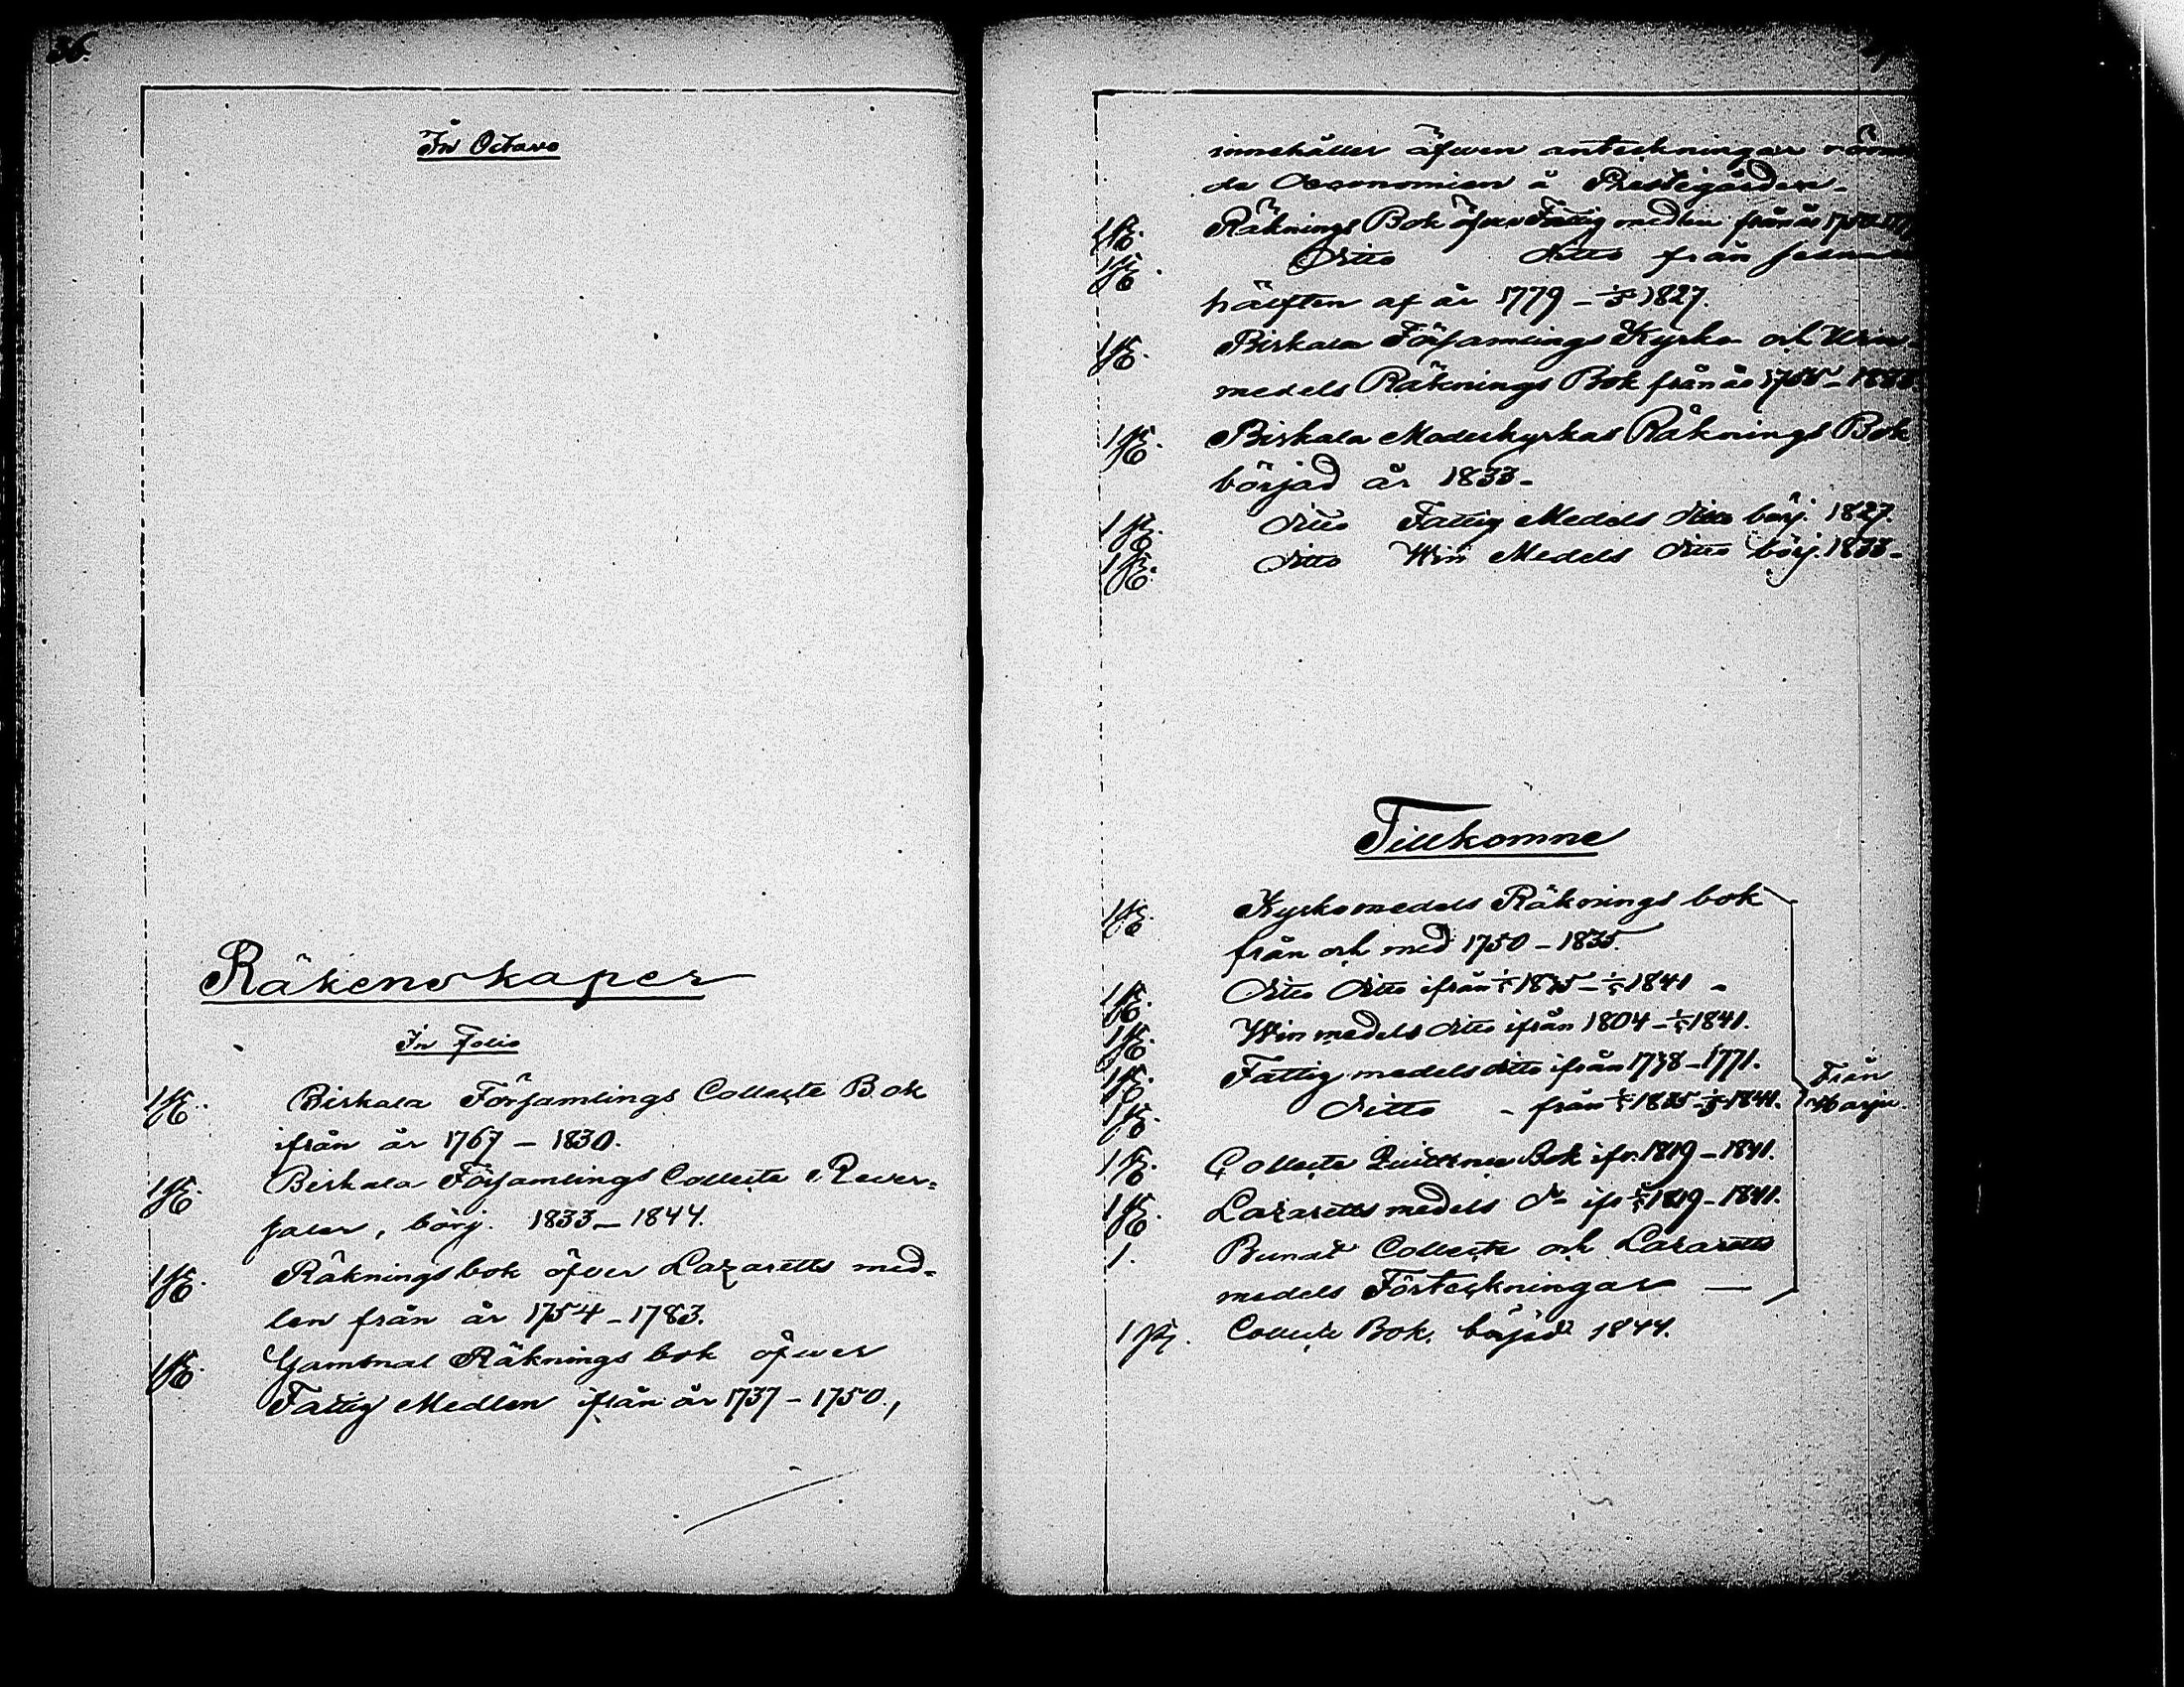 36.
In Octavo
Räkenskaper
In Folio
1 st. Birkala Församlings Collecte Bok
ifrån år 1767 – 1830.
1 st. Birkala Församlings Collecte Rever-
saler, börj. 1833 – 1844.
1 st. Räknings bok öfver Lazaretts med-
len från år 1754 – 1783.
1 st. Gammal Räknings bok öfwer
Fattig Medlen ifrån år 1737 – 1750,
innehåller äfwen anteckningar
de Oeconomien å Prestegården.
1 st. Räknings Bok öfwer Fattig medlen från år
1 st. Ditto Ditto från
hälften af år 1779 – 1/5 1827.
1 st. Birkala Församlings Kyrko och Win
medels Räknings Bok från år
1 st. Birkala Moderkyrkas Räknings Bok
börjad år 1833.
1 st. Ditto Fattig Medels Ditto börj. 1827.
1 st. Ditto Win Medels Ditto börj. 1833.
Tillkomne
1 st. Kyrko medels Räknings bok
från och med 1750 – 1835.
1 st. Ditto Ditto ifrån 1/5 1835 – 1/5 1841.
1 st. Win medels ditto ifrån 1804 – 1/5 1841.
1 st. Fattig medels ditto ifrån 1738 – 1771.
1 st. Ditto – från 1/5 1835 – 1/5 1841.
Från
Harju.
1 st. Collecte Quittence Bok ifr. 1819 – 1841.
1 st. Lazaretts medels Do ifr 1819 – 1841.
1. Bundt Collecte och Lazaretts
medels Förteckningar
1 st. Collecte Bok, börjad 1844.